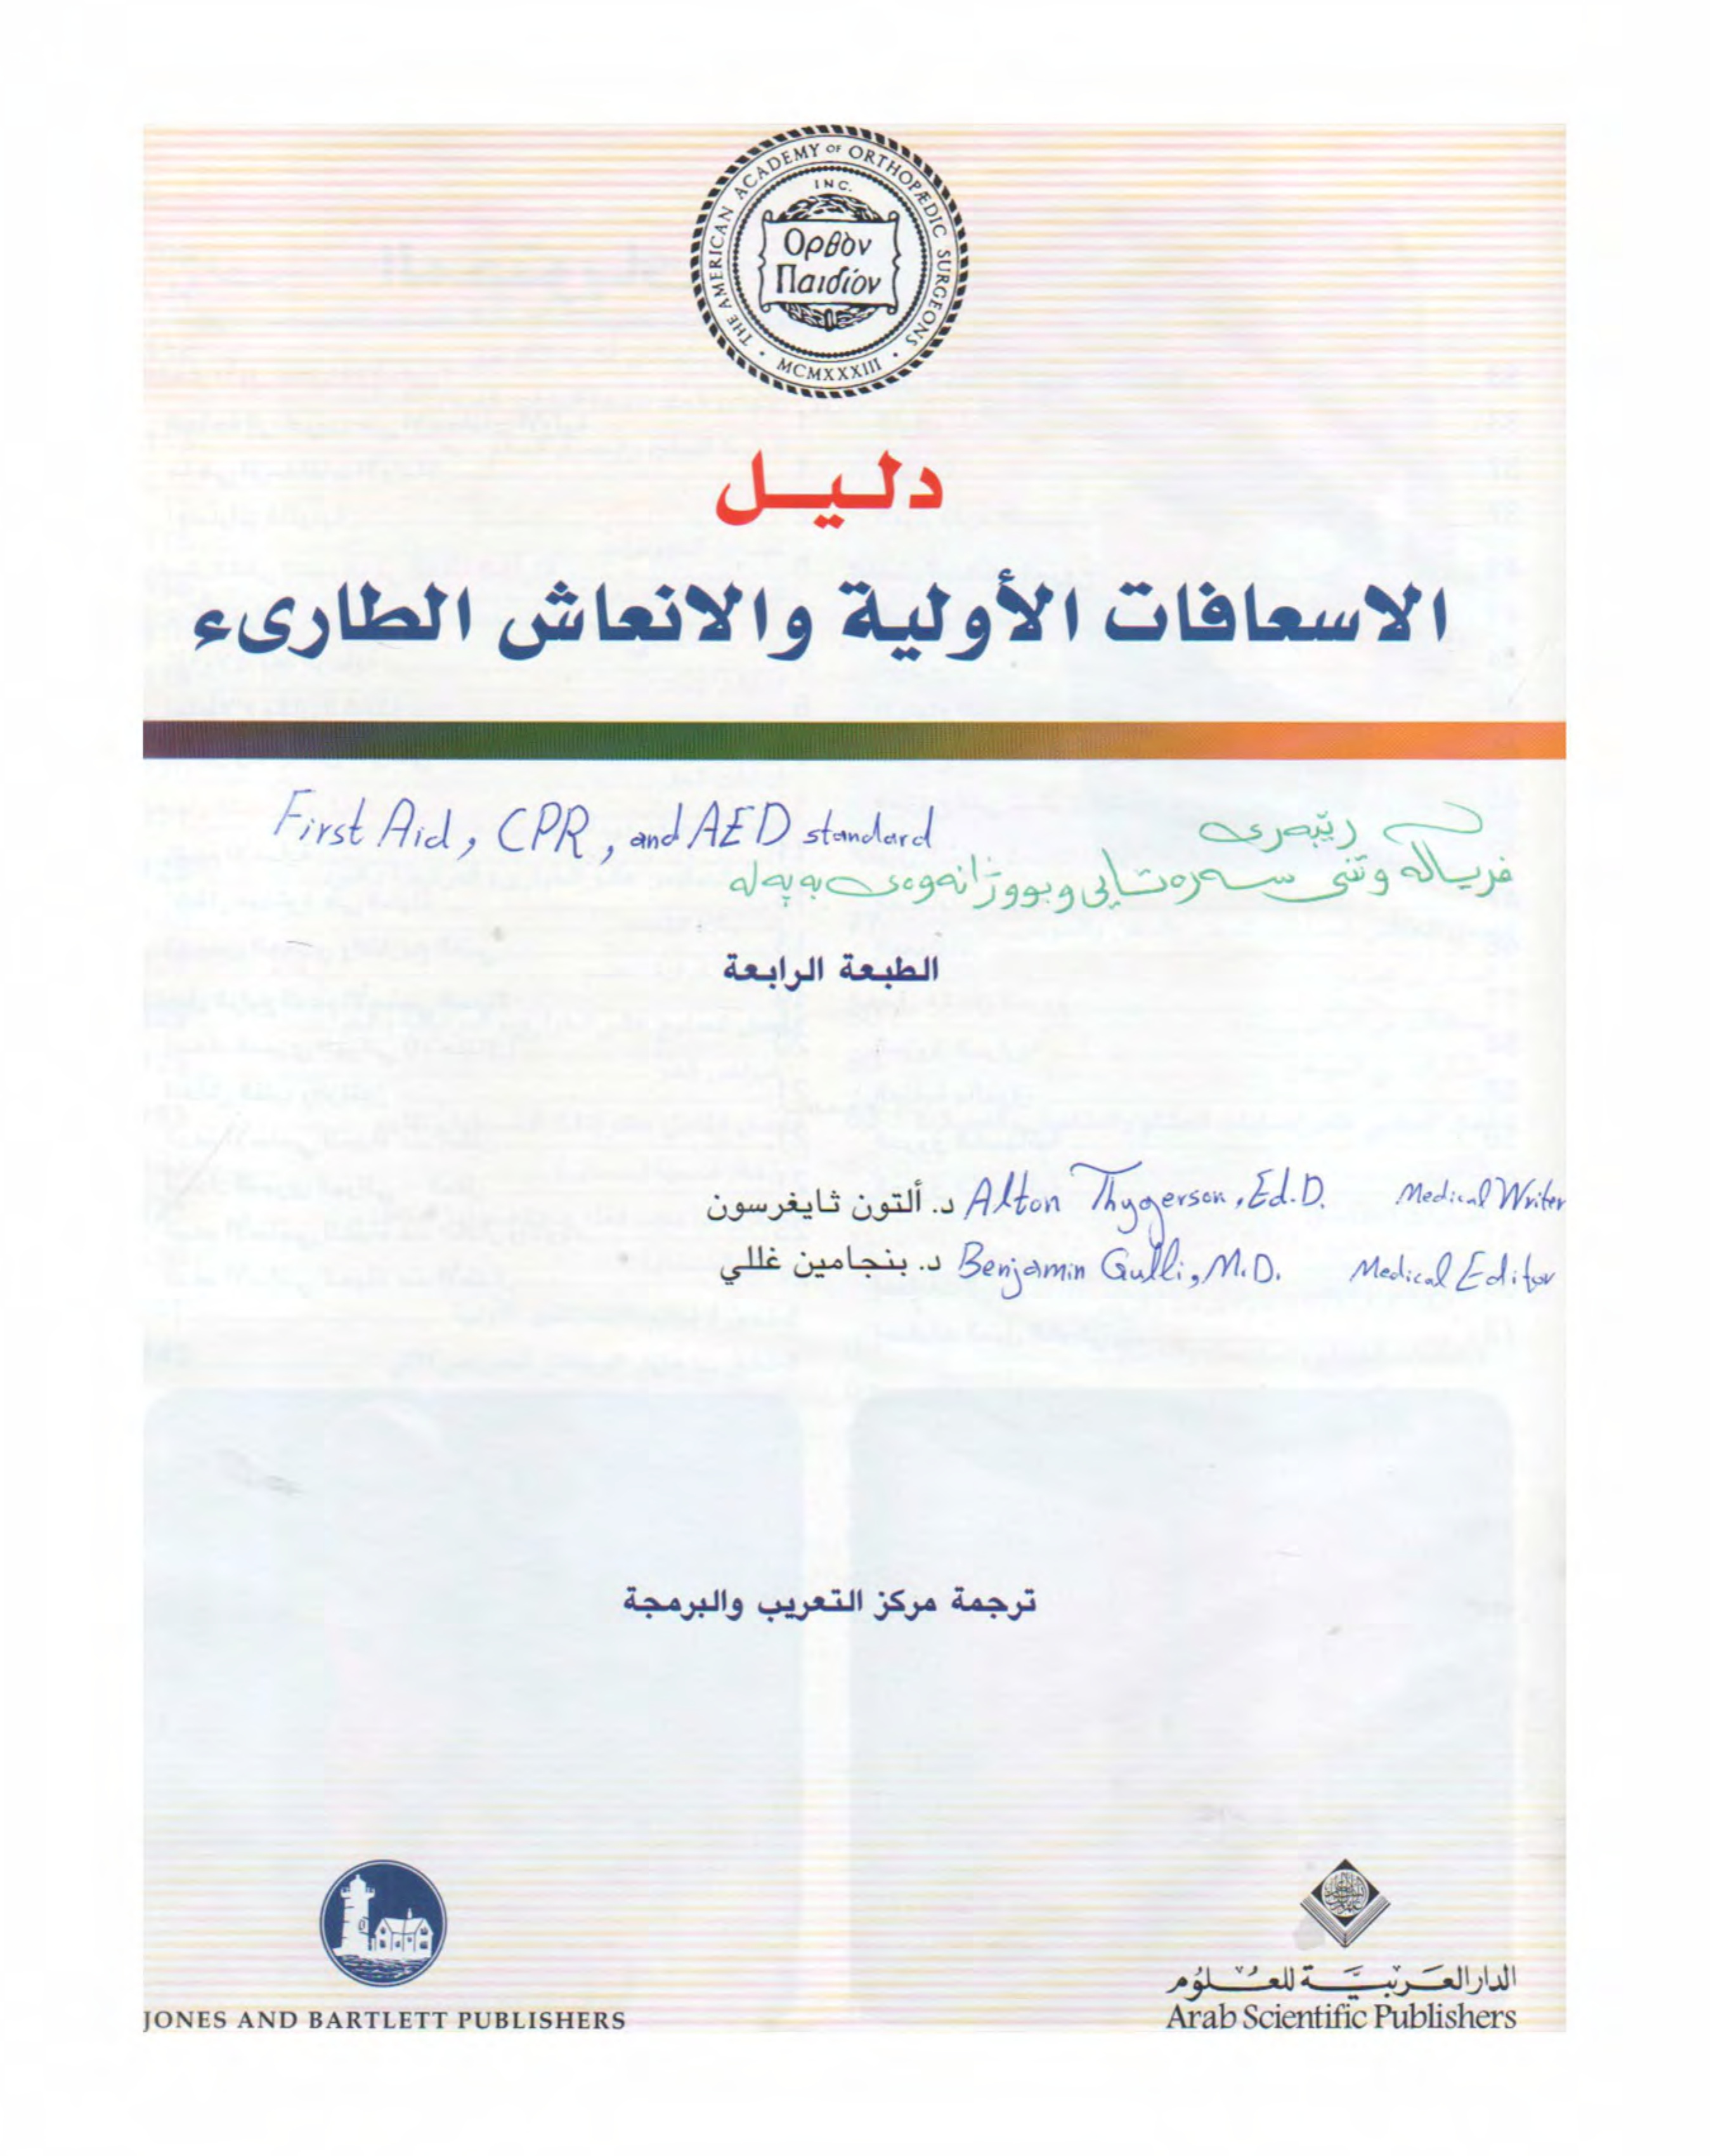 THE AMERICAN ACADEMY OF ORTHOPÆDIC SURGEONS
INC.
Ορθὸν
Παιδίον
MCMXXXIII
دليل
الاسعافات الأولية والانعاش الطارىء
First Aid, CPR, and AED standard
رێبەری
فریاکەوتنی سەرەتایی و بووژانەوەی بە پەلە
الطبعة الرابعة
د. ألتون ثايغرسون Alton Thygerson, Ed.D. Medical Writer
د. بنجامين غللي Benjamin Gulli, M.D. Medical Editor
ترجمة مركز التعريب والبرمجة
JONES AND BARTLETT PUBLISHERS
الدار العربية للعلوم
Arab Scientific Publishers